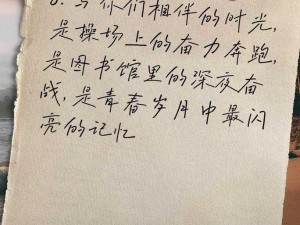 6. 与你们相伴的时光,
是操场上的奋力奔跑,
是图书馆里的深夜奋
战,是青春岁月中最闪
亮的记忆